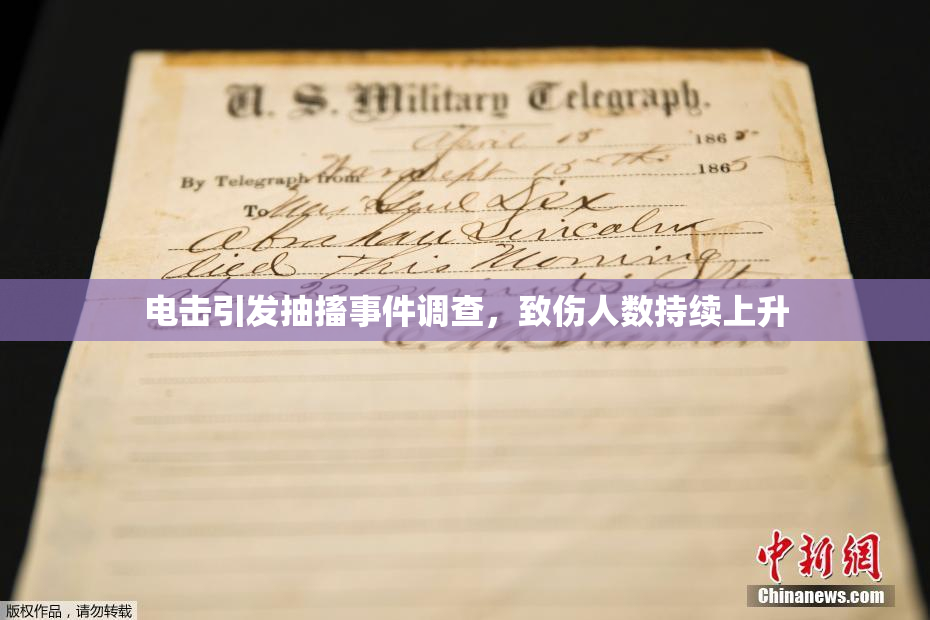 U. S. Military Telegraph.
April 15 1865
By Telegraph from War Dept 15th 1865
To Maj Genl Dix
Abraham Lincoln
died This Morning
22 minutes after
E. M. Stanton
电击引发抽搐事件调查，致伤人数持续上升
中新网
Chinanews.com
版权作品，请勿转载